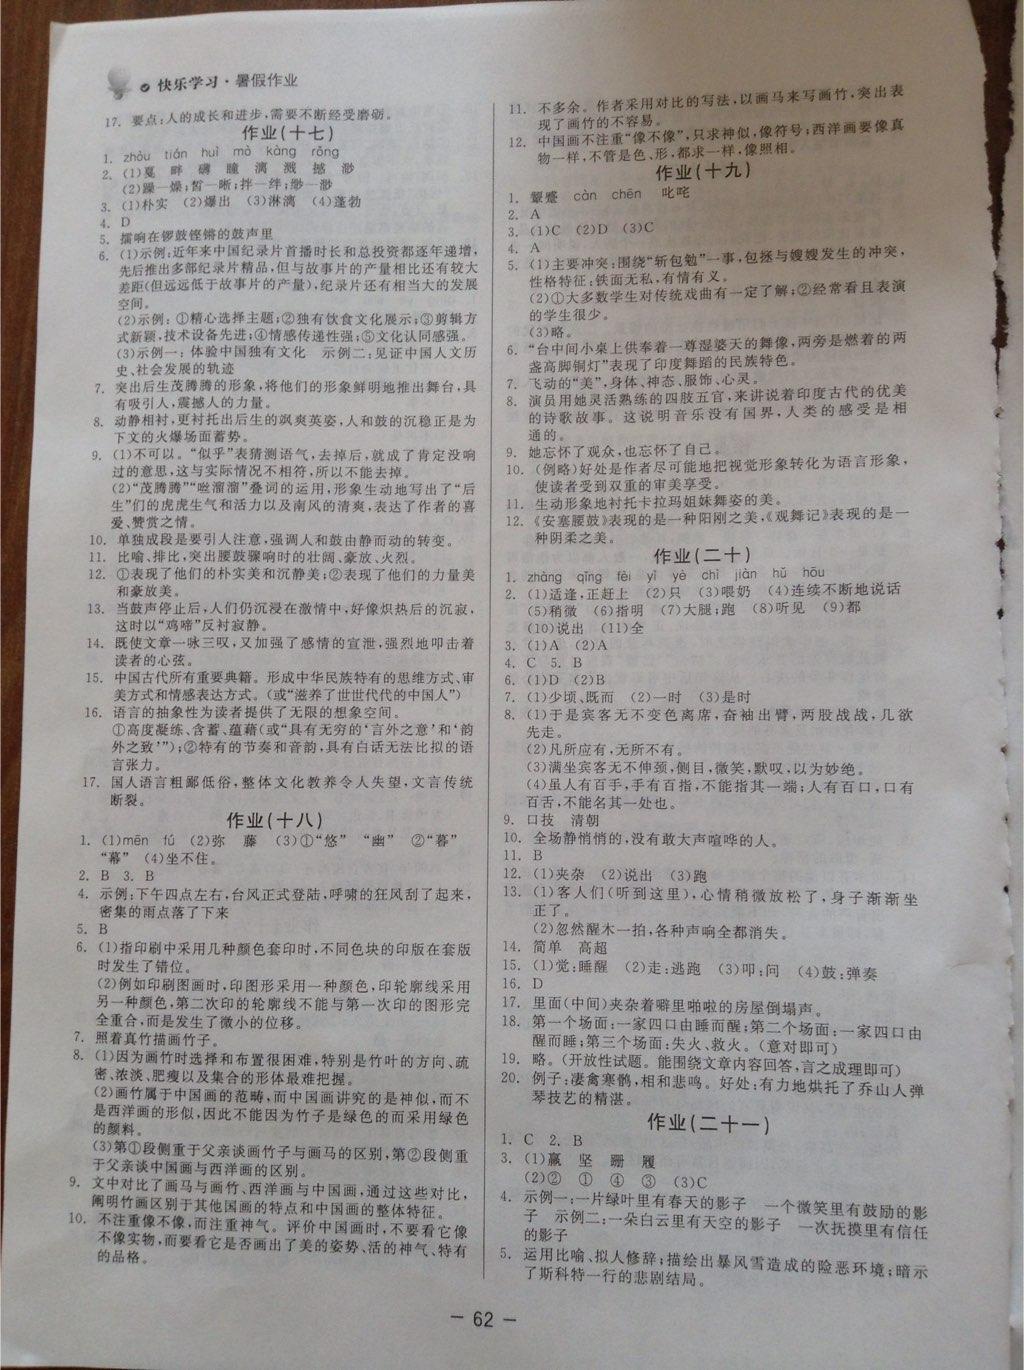 快乐学习·暑假作业
17. 要点:人的成长和进步,需要不断经受磨砺。
作业(十七)
1. zhòu tián huì mò kàng rǒng
2. (1)戛 畔 礴 瞳 漓 溅 撼 渺
(2)躁—燥;皙—晰;拌—绊;缈—渺
3. (1)朴实 (2)爆出 (3)淋漓 (4)蓬勃
4. D
5. 擂响在锣鼓铿锵的鼓声里
6. (1)示例:近年来中国纪录片首播时长和总投资都逐年递增,
先后推出多部纪录片精品,但与故事片的产量相比还有较大
差距(但远远低于故事片的产量),纪录片还有相当大的发展
空间。
(2)示例:①精心选择主题;②独有饮食文化展示;③剪辑方
式新颖,技术设备先进;④情感传递性强;⑤文化认同感强。
(3)示例一:体验中国独有文化 示例二:见证中国人文历
史、社会发展的轨迹
7. 突出后生茂腾腾的形象,将他们的形象鲜明地推出舞台,具
有吸引人,震撼人的力量。
8. 动静相衬,更衬托出后生的飒爽英姿,人和鼓的沉稳正是为
下文的火爆场面蓄势。
9. (1)不可以。“似乎”表猜测语气,去掉后,就成了肯定没响
过的意思,这与实际情况不相符,所以不能去掉。
(2)“茂腾腾”“咝溜溜”叠词的运用,形象生动地写出了“后
生”们的虎虎生气和活力以及南风的清爽,表达了作者的喜
爱、赞赏之情。
10. 单独成段是要引人注意,强调人和鼓由静而动的转变。
11. 比喻、排比,突出腰鼓骤响时的壮阔、豪放、火烈。
12. ①表现了他们的朴实美和沉静美;②表现了他们的力量美
和豪放美。
13. 当鼓声停止后,人们仍沉浸在激情中,好像炽热后的沉寂,
这时以“鸡啼”反衬寂静。
14. 既使文章一咏三叹,又加强了感情的宣泄,强烈地叩击着
读者的心弦。
15. 中国古代所有重要典籍。形成中华民族特有的思维方式、审
美方式和情感表达方式。(或“滋养了世世代代的中国人”)
16. 语言的抽象性为读者提供了无限的想象空间。
①高度凝练、含蓄、蕴藉(或“具有无穷的‘言外之意’和‘韵
外之致’”);②特有的节奏和音韵,具有白话无法比拟的语
言张力。
17. 国人语言粗鄙低俗,整体文化教养令人失望,文言传统
断裂。
作业(十八)
1. (1)mēn fú (2)弥 藤 (3)①“悠” “幽” ②“暮”
“幕” (4)坐不住。
2. B 3. B
4. 示例:下午四点左右,台风正式登陆,呼啸的狂风刮了起来,
密集的雨点落了下来
5. B
6. (1)指印刷中采用几种颜色套印时,不同色块的印版在套版
时发生了错位。
(2)例如印刷图画时,印图形采用一种颜色,印轮廓线采用
另一种颜色,第二次印的轮廓线不能与第一次印的图形完
全重合,而是发生了微小的位移。
7. 照着真竹描画竹子。
8. (1)因为画竹时选择和布置很困难,特别是竹叶的方向、疏
密、浓淡、肥瘦以及集合的形体最难把握。
(2)画竹属于中国画的范畴,而中国画讲究的是神似,而不
是西洋画的形似,因此不能因为竹子是绿色的而采用绿色
的颜料。
(3)第①段侧重于父亲谈画竹子与画马的区别,第②段侧重
于父亲谈中国画与西洋画的区别。
9. 文中对比了画马与画竹、西洋画与中国画,通过这些对比,
阐明竹画区别于其他国画的特点和中国画的整体特征。
10. 不注重像不像,而注重神气。评价中国画时,不要看它像
不像实物,而要看它是否画出了美的姿势、活的神气、特有
的品格。
11. 不多余。作者采用对比的写法,以画马来写画竹,突出表
现了画竹的不容易。
12. 中国画不注重“像不像”,只求神似,像符号;西洋画要像真
物一样,不管是色、形,都求一样,像照相。
作业(十九)
1. 颦蹙 càn chēn 叱咤
2. A
3. (1)C (2)D (3)C
4. A
5. (1)主要冲突:围绕“斩包勉”一事,包拯与嫂嫂发生的冲突,
性格特征:铁面无私,有情有义。
(2)①大多数学生对传统戏曲有一定了解;②经常看且表演
的学生很少。
(3)略。
6. “台中间小桌上供奉着一尊湿婆天的舞像,两旁是燃着的两
盏高脚铜灯”表现了印度舞蹈的民族特色。
7. 飞动的“美”,身体、神态、服饰、心灵。
8. 演员用她灵活熟练的四肢五官,来讲说着印度古代的优美
的诗歌故事。这说明音乐没有国界,人类的感受是相
通的。
9. 她忘怀了观众,也忘怀了自己。
10. (例略)好处是作者尽可能地把视觉形象转化为语言形象,
使读者受到双重的审美享受。
11. 生动形象地衬托卡拉玛姐妹舞姿的美。
12. 《安塞腰鼓》表现的是一种阳刚之美,《观舞记》表现的是一
种阴柔之美。
作业(二十)
1. zhàng qǐng fèi yǐ yè chì jiàn hū hōu
2. (1)适逢,正赶上 (2)只 (3)喂奶 (4)连续不断地说话
(5)稍微 (6)指明 (7)大腿;跑 (8)听见 (9)都
(10)说出 (11)全
3. (1)A (2)A
4. C 5. B
6. (1)D (2)B
7. (1)少顷、既而 (2)一时 (3)是时
8. (1)于是宾客无不变色离席,奋袖出臂,两股战战,几欲
先走。
(2)凡所应有,无所不有。
(3)满坐宾客无不伸颈,侧目,微笑,默叹,以为妙绝。
(4)虽人有百手,手有百指,不能指其一端;人有百口,口有
百舌,不能名其一处也。
9. 口技 清朝
10. 全场静悄悄的,没有敢大声喧哗的人。
11. B
12. (1)夹杂 (2)说出 (3)跑
13. (1)客人们(听到这里),心情稍微放松了,身子渐渐坐
正了。
(2)忽然醒木一拍,各种声响全都消失。
14. 简单 高超
15. (1)觉:睡醒 (2)走:逃跑 (3)叩:问 (4)鼓:弹奏
16. D
17. 里面(中间)夹杂着噼里啪啦的房屋倒塌声。
18. 第一个场面:一家四口由睡而醒;第二个场面:一家四口由
醒而睡;第三个场面:失火、救火。(意对即可)
19. 略。(开放性试题。能围绕文章内容回答,言之成理即可)
20. 例子:凄禽寒鹘,相和悲鸣。好处:有力地烘托了乔山人弹
琴技艺的精湛。
作业(二十一)
1. C 2. B
3. (1)赢 坚 跚 履
(2)② ① ④ ③ (3)C
4. 示例一:一片绿叶里有春天的影子 一个微笑里有鼓励的影
子 示例二:一朵白云里有天空的影子 一次抚摸里有信任
的影子
5. 运用比喻、拟人修辞;描绘出暴风雪造成的险恶环境;暗示
了斯科特一行的悲剧结局。
— 62 —